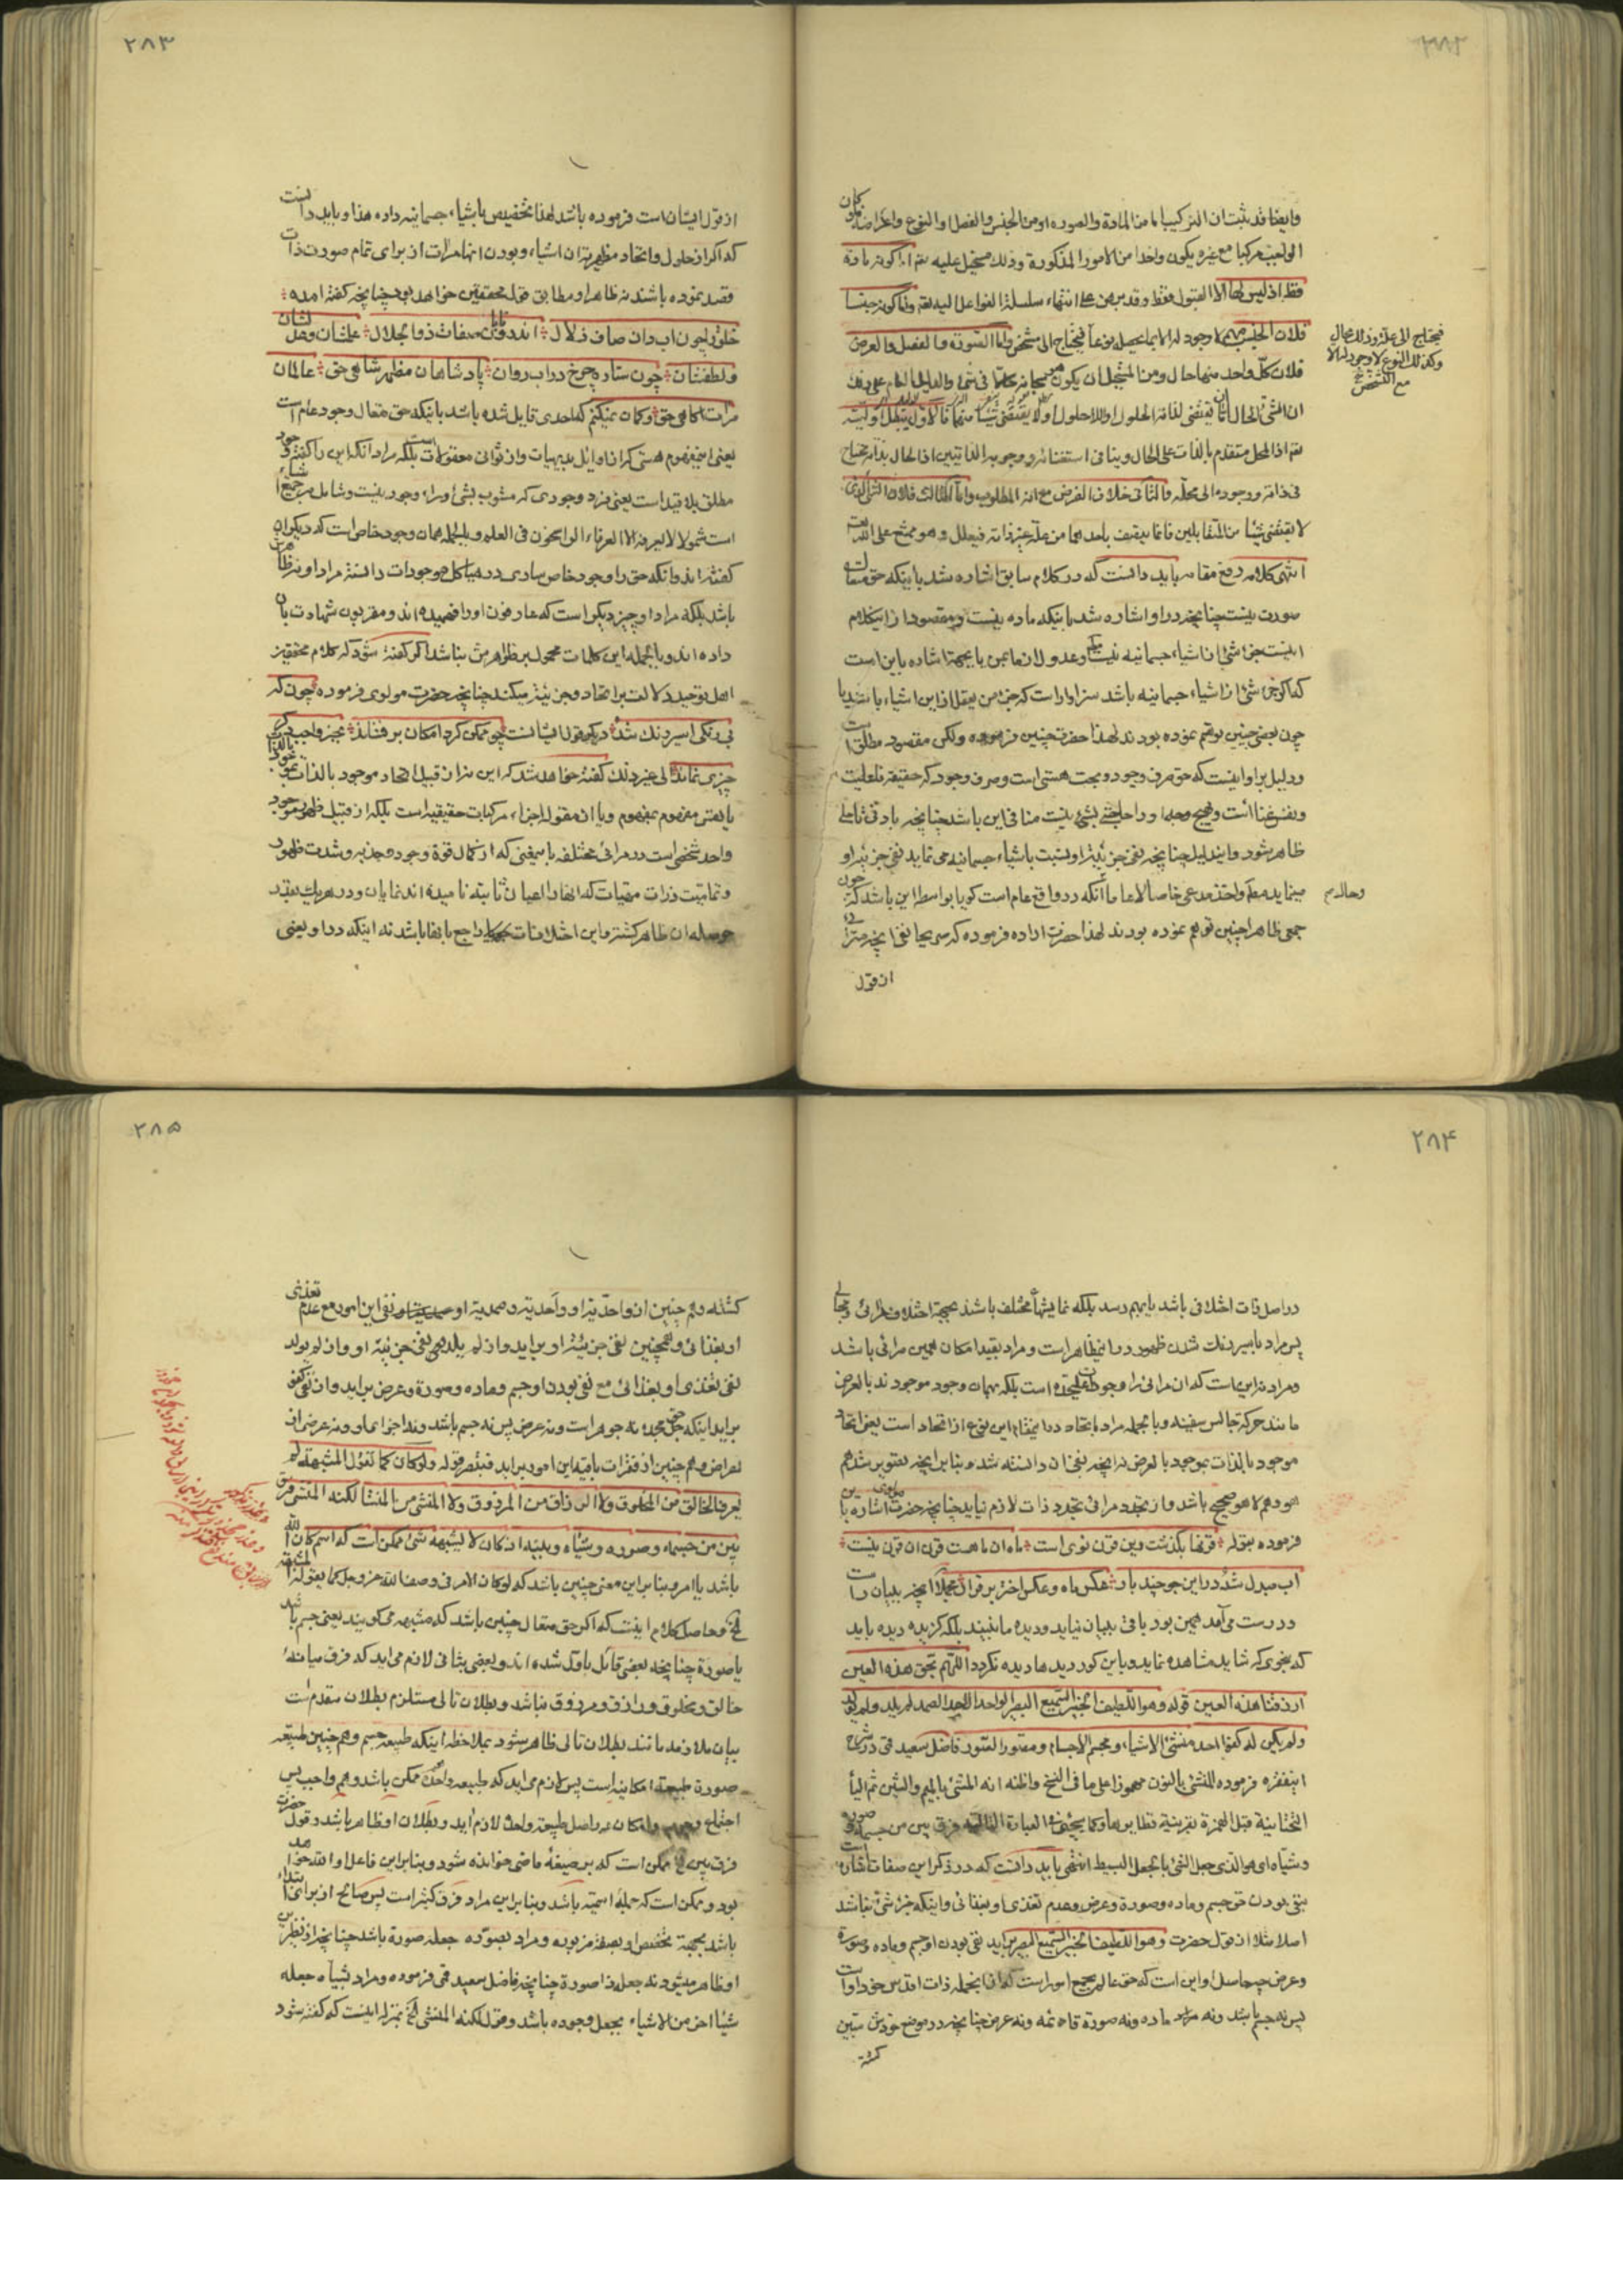 ۲۸۲
وایضا قد ثبت ان الترکیب اما من المادة والصورة او من الجنس والفصل او النوع واعراضه فلو کان
الواجب مرکبا مع غیره یکون واحدا من الامور المذکورة وذلک مستحیل علیه تعم اما کونه مادة
فقط اذ لیس لها الا القبول فقط وقد برهن علی انتهاء سلسلة الفواعل الیه تعم واما کونه جنسا
فلان الجنس مبهم لا وجود له الا بما یحصله نوعا فیحتاج الی مشخص واما الصورة والفصل والعرض
فلان کل واحد منها حال ومن المستحیل ان یکون
ان الشئ الحال اما ان یقتضی لذاته الحلول او اللاحلول او لا یقتضی شیئا منهما فالاول یبطل
تعم اذ المحل متقدم بالذات علی الحال وینافی استغنائه ووجوبه الذاتیین اذ الحال بذاته محتاج
فی ذاته ووجوده الی محله والثانی خلاف الفرض مع انه المطلوب واما الثالث فلان الشئ الذی
لا یقتضی شیئا من المتقابلین فانما یتصف باحدهما من علة غیر ذاته فیعلل وهو ممتنع علی الله تعم
انتهی کلامه رفع مقامه باید دانست که در کلام سابق اشاره شد باینکه حق متعال
صورت نیست چنانچه در او اشاره شد باینکه ماده نیست ومقصود از اینکلام
اینست جزء شئ از اشیاء جسمانیه نیست وعدول از تعابیر باینجهة اشاره باین است
که اگر جزء شئ از اشیاء جسمانیه باشد سزاوار است که جزء من یعقل از این اشیاء باشد یا
چون بعضی چنین توهم نموده بودند لهذا حضرت چنین فرموده ولکن مقصود مطلق است
ودلیل بر او اینست که حق صرف وجود وبحت هستی است وصرف وجود که حقیقة فعلیت
ونفس غنا است
ظاهر میشود واین دلیل چنانچه نفی جزئیة او بنسبت باشیاء جسمانیه می نماید نفی جزئیة او
مینماید مطلقا
جمعی ظاهرا چنین توهم نموده بودند لهذا حضرت اراده فرموده که صریحا نفی آنچه متراای
از قول
فیحتاج الی علة وذلک محال
وکذلک النوع لا وجود له الا
مع التشخص
وحال دم
۲۸۳
از قول ایشان است فرموده باشد لهذا تخصیص باشیاء جسمانیه داده هذا وباید دانست
که اگر از حلول واتحاد مظهریة ان اشیاء وبودن انها مرآت از برای تمام صورت ذات
قصد نموده باشند نه ظاهر او مطابق قول محققین خواهد بود چنانچه گفته آمده
خلق را چون اب دان صاف زلال اندر و تابان صفات ذوالجلال علمشان وعدلشان
ولطفشان چون ستاره چرخ در اب روان پادشاهان مظهر شاهی حق عالمان
مرآت اگاهی حق وگمان نمیکنم که احدی قایل شده باشد باینکه حق متعال وجود عام است
یعنی این مفهوم هستی که از اوایل بدیهیات واز ثوانی معقولات است بلکه مراد انکه این را گفته وجود
مطلق بلا قید است یعنی فرد وجودی که مشوب بشئ وراء وجود نیست وشامل جمیع اشیاء
است شمولا لا یعرفه الا العرفاء الراسخون فی العلم وبالجمله همان وجود خاص است که دیگران
گفته اند وانکه حق را وجود خاص ساری در هیاکل موجودات دانسته مراد او نه ظاهر
باشد بلکه مراد او چیز دیگر است که عارفون او را فهمیده اند ومقربون شهادت بان
داده اند وبالجمله این کلمات محمول بر ظواهر من نباشد اگر گفته شود که کلام محققین
اهل توحید دلالت بر اتحاد وجزئیة میکند چنانچه حضرت مولوی فرموده چون که
بی رنگی اسیر رنگ شد دیگر قول ایشانست چو ممکن گرد امکان بر فشاند بجز واجب دگر
چیزی نماند الی غیر ذلک گفته خواهد شد که این نه از قبیل اتحاد موجود بالذات بموجود بالذات
یا یعنی مفهوم بمفهوم ویا ان مقول اجزاء مرکبات حقیقیه است بلکه از قبیل ظهور موجود
واحد شخصی است در مرائی مختلفه بامعنی که از کمال قوة وجود وجذبه وشدت ظهور
وتمامیت ذرات مهیات که انها را اعیان ثابته نامیده اند نمایان ودر هر یک بقدر
حوصله ان ظاهر گشته واین اختلافات راجع بانها باشد نه اینکه در او یعنی
۲۸۴
در اصل ذات اختلافی باشد یا بهم رسد بلکه نمایشها مختلف باشد بجهة اختلاف مرائی ومجالی
پس مراد باسیر رنگ شدن ظهور در این مظاهر است ومراد بقید امکان همین مرائی باشد
ومراد نه این است که ان مرائی را وجود علیحده است بلکه بهمان وجود موجودند بالعرض
مانند حرکة جالس سفینه وبالجمله مراد باتحاد در اینمقام این نوع از اتحاد است یعنی اتحاد
موجود بالذات بموجود بالعرض نه انچه نفی ان دانسته شد وبنا بر انچه تصویر شد هم
هو وهم لا هو صحیح باشد واز تجدد مرائی تجدد ذات لازم نیاید چنانچه حضرت مولوی اشاره باین
فرموده بقوله قرنها بگذشت وین قرن نوی است ماه ان ماهست قرن ان قرن نیست
اب مبدل شد در این جو چند بار عکس ماه وعکس اختر بر قرار مجملا انچه بلیان راست
ودرست می آمد همین بود باقی ببیان نیاید ودیده ما نبیند بلکه گزیده دیده باید
که بنحوی که شاید مشاهده نماید وباین کور دیدها دیده نگردد اللهم بحق هذه العین
ارزقنا هذه العین قوله وهو اللطیف الخبیر السمیع البصیر الواحد الاحد الصمد لم یلد ولم یولد
ولم یکن له کفوا احد منشئ الاشیاء ومجسم الاجسام ومصور الصور فاضل سعید قمی در شرح
اینفقره فرموده المنشئ بالنون مهموزا علی ما فی النسخ واظنه انه المشئ بالمیم والشین ثم الیأ
التحتانیة قبل الهمزة بقرینة نظایرها وکما یجئ فی العبارة التالیة فرق بین من جسمه وصوره
وشیاه ای هو الذی جعل الشئ بالجعل البسیط انتهی باید دانست که در ذکر این صفات اشاره است
بنفی بودن حق جسم وماده وصورة وعرض وعدم تغذی او بغذائی واینکه جزء شئ نباشد
اصلا مثلا از قول حضرت وهو اللطیف الخبیر السمیع البصیر براید نفی بودن او جسم وماده وصورة
وعرض چه حاصل او این است که حق عالم بجمیع امور است که از انجمله ذات اقدس خود اوست
پس نه جسم باشد ونه ماده ونه صورة قائمه ونه عرض چنانچه در موضع خودش مبین
گشته
۲۸۵
گشته وهم چنین از واحدیة او واحدیة وصمدیة او نفی این امور مع عدم تغذی
او بغذائی وهمچنین نفی جزئیة او براید واز لم یلد هم نفی جزئیة او واز لم یولد
نفی تغذی او بغذائی مع نفی بودن او جسم وماده وصورة وعرض براید واز نفی کفو
براید اینکه حق جل مجده نه جوهر است ونه عرض پس نه جسم باشد ونه اجزای او ونه عرضی از
اعراض وهم چنین از فقرات باقیه این امور براید فتبصر قوله ولو کان کما تقول المشبهة لم
یعرف الخالق من المخلوق ولا الرازق من المرزوق ولا المنشئ من المنشأ لکنه المنشئ فرق
بین من جسمه وصوره وشیاه وبینه اذ کان لا یشبهه شئ ممکن است که اسم کان الله
باشد یا امر وبنا بر این معنی چنین باشد که لو کان الامر فی وصف الله عز وجل کما یقوله المشبهة
الخ وحاصل کلام اینست که اگر حق متعال چنین باشد که مشبهه می گویند یعنی جسم باشد
یا صورة چنانچه بعضی قائل باول شده اند وبعضی بثانی لازم می آید که فرق میانه
خالق ومخلوق ورازق ومرزوق نباشد وبطلان تالی مستلزم بطلان مقدم است
بیان ملازمه مانند بطلان تالی ظاهر میشود بملاحظه اینکه طبیعة جسم وهم چنین طبیعة
صورة طبیعة امکانیه است پس لازم می آید که طبیعة واحده ممکن باشد وهم واجب پس
اجتماع وجوب وامکان در اصل طبیعة واحده لازم آید وبطلان او ظاهر باشد وقول حضرت
فرق بین الخ ممکن است که بر صیغة ماضی خوانده شود وبنا بر این فاعل او الله خواهد
بود وممکن است که جمله اسمیه باشد وبنا بر این مراد فرق کثیر است پس صالح از برای ابتداء
باشد بجهة تخصیص او بصفة مزبوره ومراد بصوره جعله صورة باشد چنانچه از نظیرین
او ظاهر میشود نه جعل ذا صورة چنانچه فاضل سعید قمی فرموده ومراد بشیاه جعله
شیئا اخر من الاشیاء بجعل وجوده باشد وقوله لکنه المنشئ الخ بمنزله اینست که گفته شود